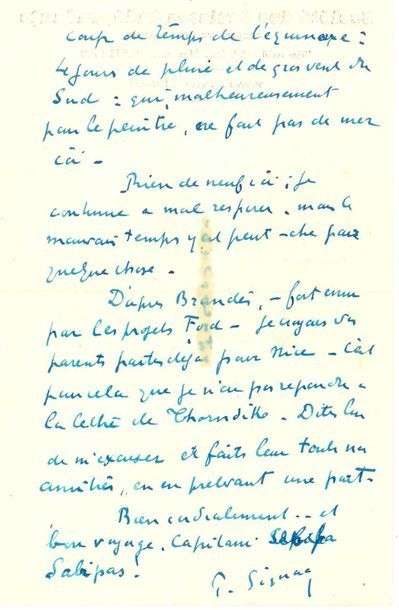 coup de temps de l'équinoxe :
4 jours de pluie et de gros vent du
Sud : qui, malheureusement
pour le peintre, ne fait pas de mer
ici -
Rien de neuf ici ; je
continue a mal respirer. mais le
mauvais temps y est peut-être pour
quelque chose.
D'après Brandès, - fort ennuyé
par les projets Ford - je croyais vos
parents partis déjà pour Nice - C'est
pour cela que je n'ai pas répondu a
la lettre de Thorndike - Dites lui
de m'excuser et faites leur toutes nos
amitiés, en en prélevant une part.
Bien cordialement.. et
bon voyage. Capitaine
P. Signac